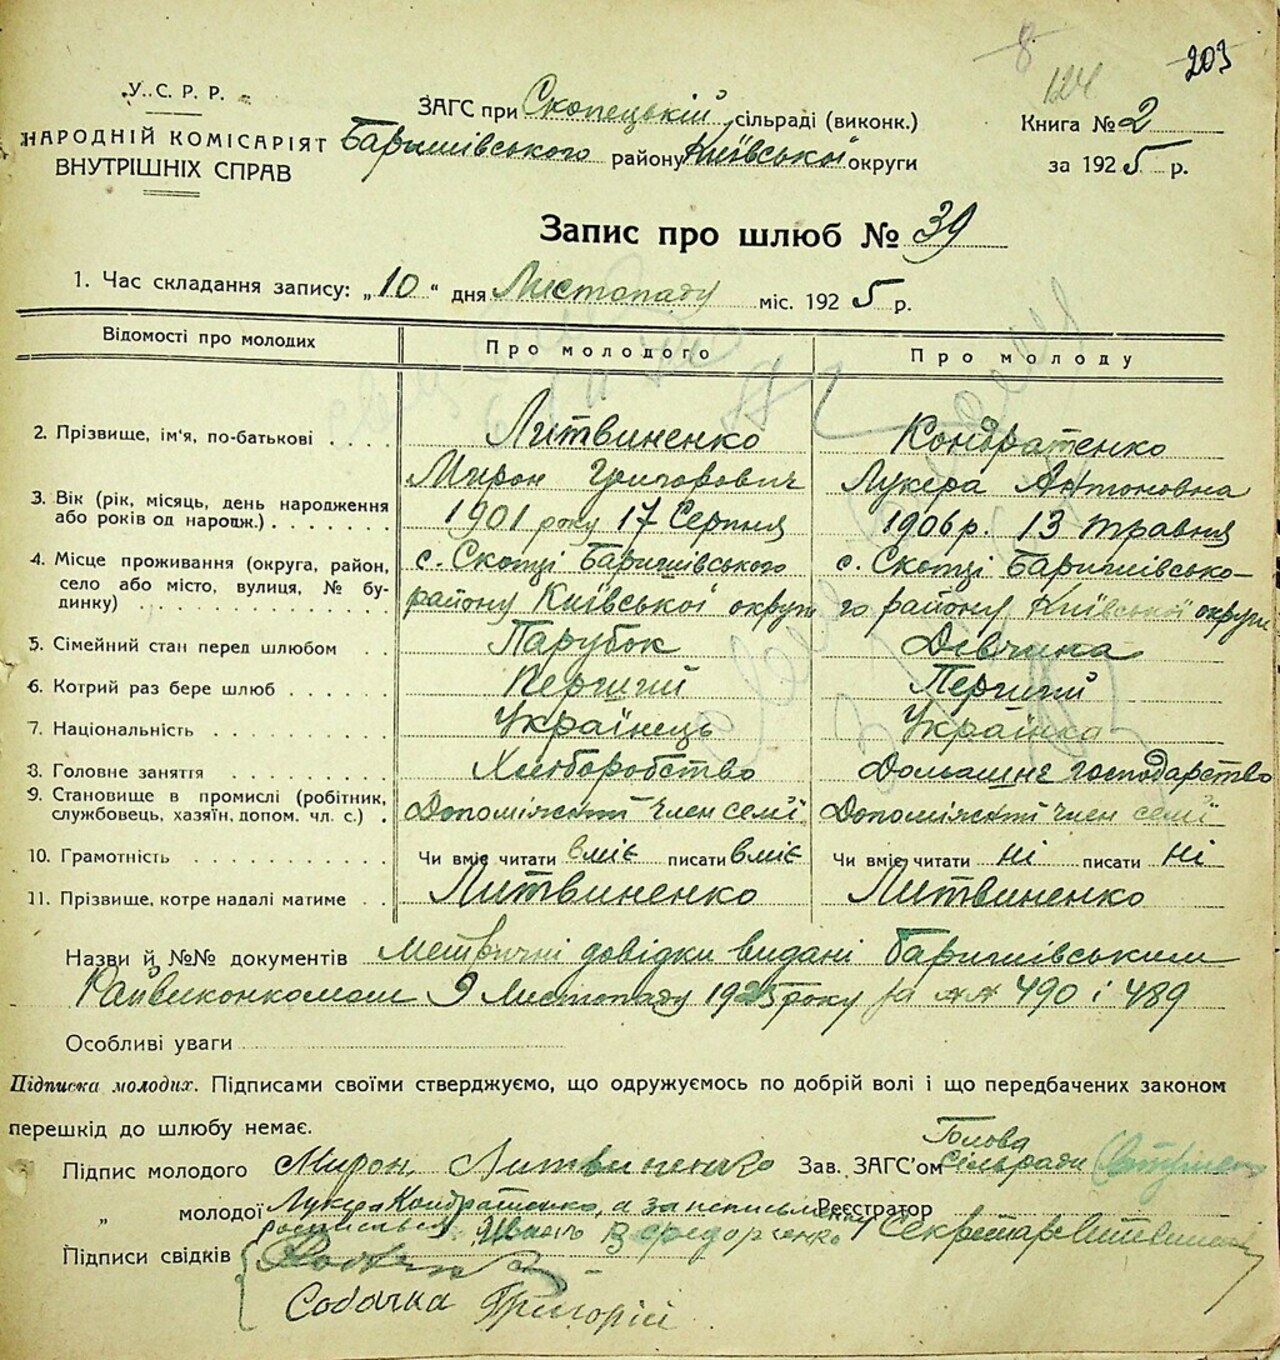 203
8
124
У. С. Р. Р.
НАРОДНІЙ КОМІСАРІЯТ
ВНУТРІШНІХ СПРАВ
ЗАГС при Скопецькій сільраді (виконк.)
Баришівського району Київської округи
Книга № 2
за 1925 р.
Запис про шлюб № 39
1. Час складання запису: „10“ дня Листопаду міс. 1925 р.
Відомості про молодих Про молодого Про молоду
2. Прізвище, ім'я, по-батькові . . . . Литвиненко Кондратенко
Мирон Григорович Лукера Антоновна
3. Вік (рік, місяць, день народження
або років од народж.) . . . . . . . 1901 року 17 Серпня 1906 р. 13 травня
4. Місце проживання (округа, район, с. Скопці Баришівського с. Скопці Баришівсько-
село або місто, вулиця, № бу-
динку) . . . . . . . . . . . . району Київської округи го району Київської округи
5. Сімейний стан перед шлюбом . . Парубок Дівчина
6. Котрий раз бере шлюб . . . . . . Перший Перший
7. Національність . . . . . . . . . . Українець Українка
8. Головне заняття . . . . . . . . . Хліборобство Домашнє господарство
9. Становище в промислі (робітник,
службовець, хазяїн, допом. чл. с.) . Допоміжний член семї Допоміжний член семї
10. Грамотність . . . . . . . . . . . Чи вміє читати вміє писати вміє Чи вміє читати ні писати ні
11. Прізвище, котре надалі матиме . . Литвиненко Литвиненко
Назви й №№ документів метричні довідки видані Баришівським
Райвиконкомом 9 Листопаду 1925 року за №№ 490 і 489
Особливі уваги
Підписка молодих. Підписами своїми стверджуємо, що одружуємось по добрій волі і що передбачених законом
перешкід до шлюбу немає.
Підпис молодого Мирон Литвиненко Зав. ЗАГС'ом Голова сільради
„ молодої Лукера Кондратенко, а за неписьменну Реєстратор Секретар Литвиненко
Підписи свідків
Собачка Григорій